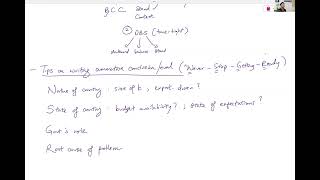 BCC Stand
Context
② DBS (time-tight)
Stand
- Tips on writing conclusion/end (Never - Stop - Getting - Ready)
Nature of country : size of k , export-driven?
State of country : budget availability? , state of expectations?
Govt's role
Root cause of problem